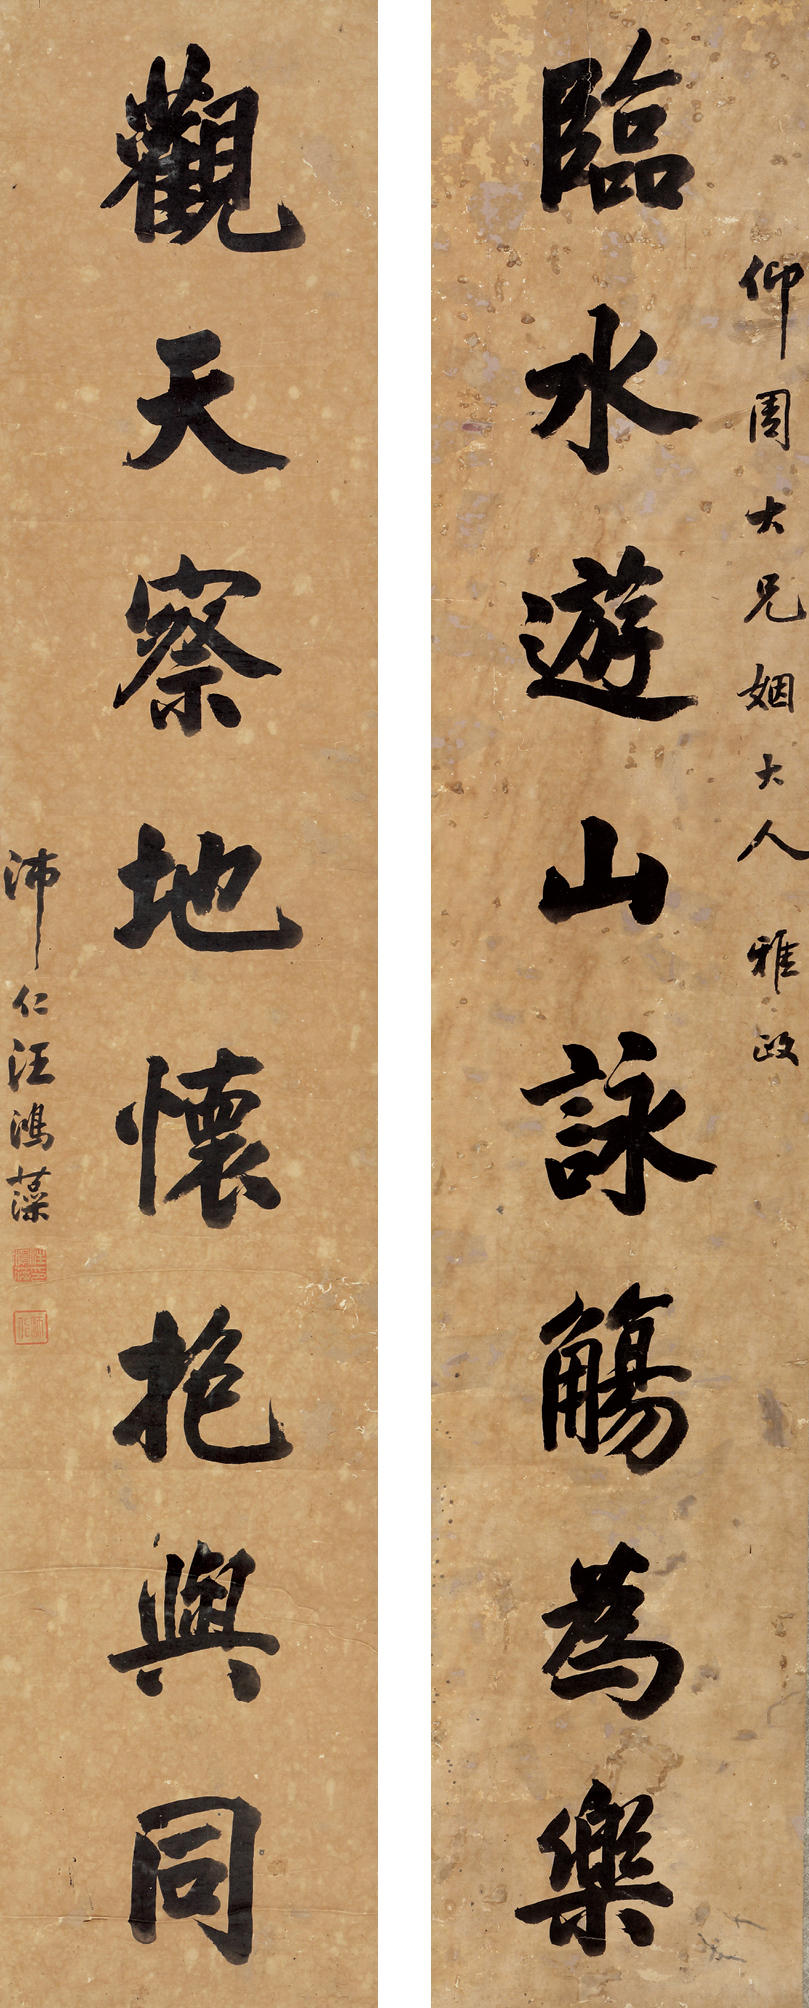 仰周大兄姻大人 雅政
臨水遊山詠觴為樂
觀天察地懷抱與同
沛仁汪鴻藻